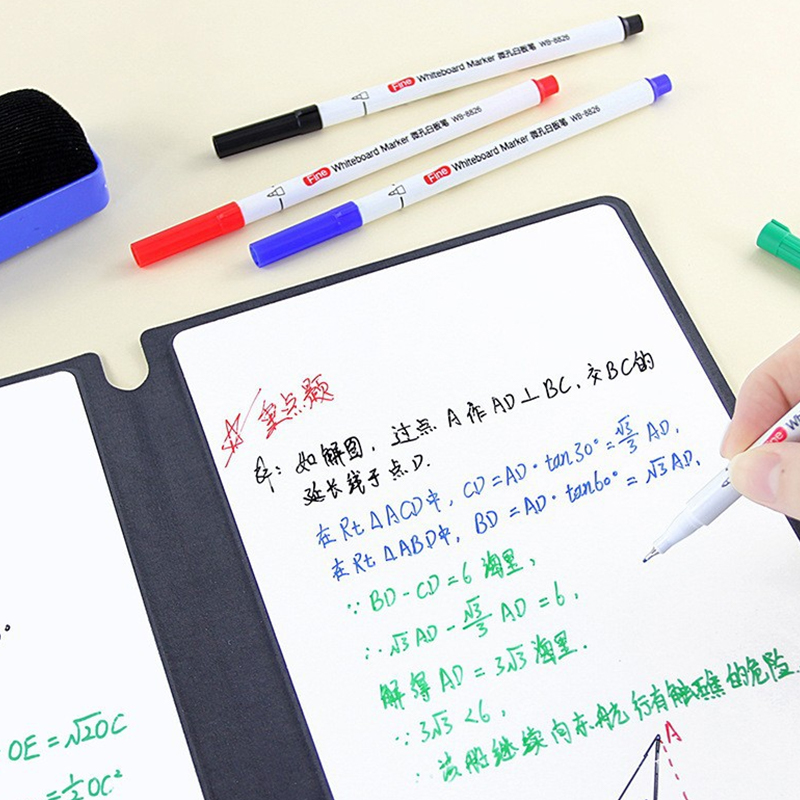 Fine Whiteboard Marker 微孔白板笔 WB-8826
Fine Whiteboard Marker 微孔白板笔 WB-8826
Fine Whiteboard Marker 微孔白板笔 WB-8826
Fine Wh
☆ 重点题
如解图，过点 A 作 AD⊥BC，交BC的
延长线于点D.
在Rt△ACD中，CD=AD·tan30°=√3/3 AD，
在Rt△ABD中，BD=AD·tan60°=√3AD，
∵BD-CD=6海里，
∴√3AD-√3/3AD=6，
解得AD=3√3海里.
∵3√3<6，
∴该船继续向东航行有触礁的危险.
A
OE=√2OC
=½OC²